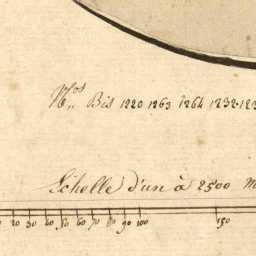 Nos Bis 1220 1263 1264 1232
Echelle d'un à 2500 m
20 30 40 50 60 70 80 90 100 150